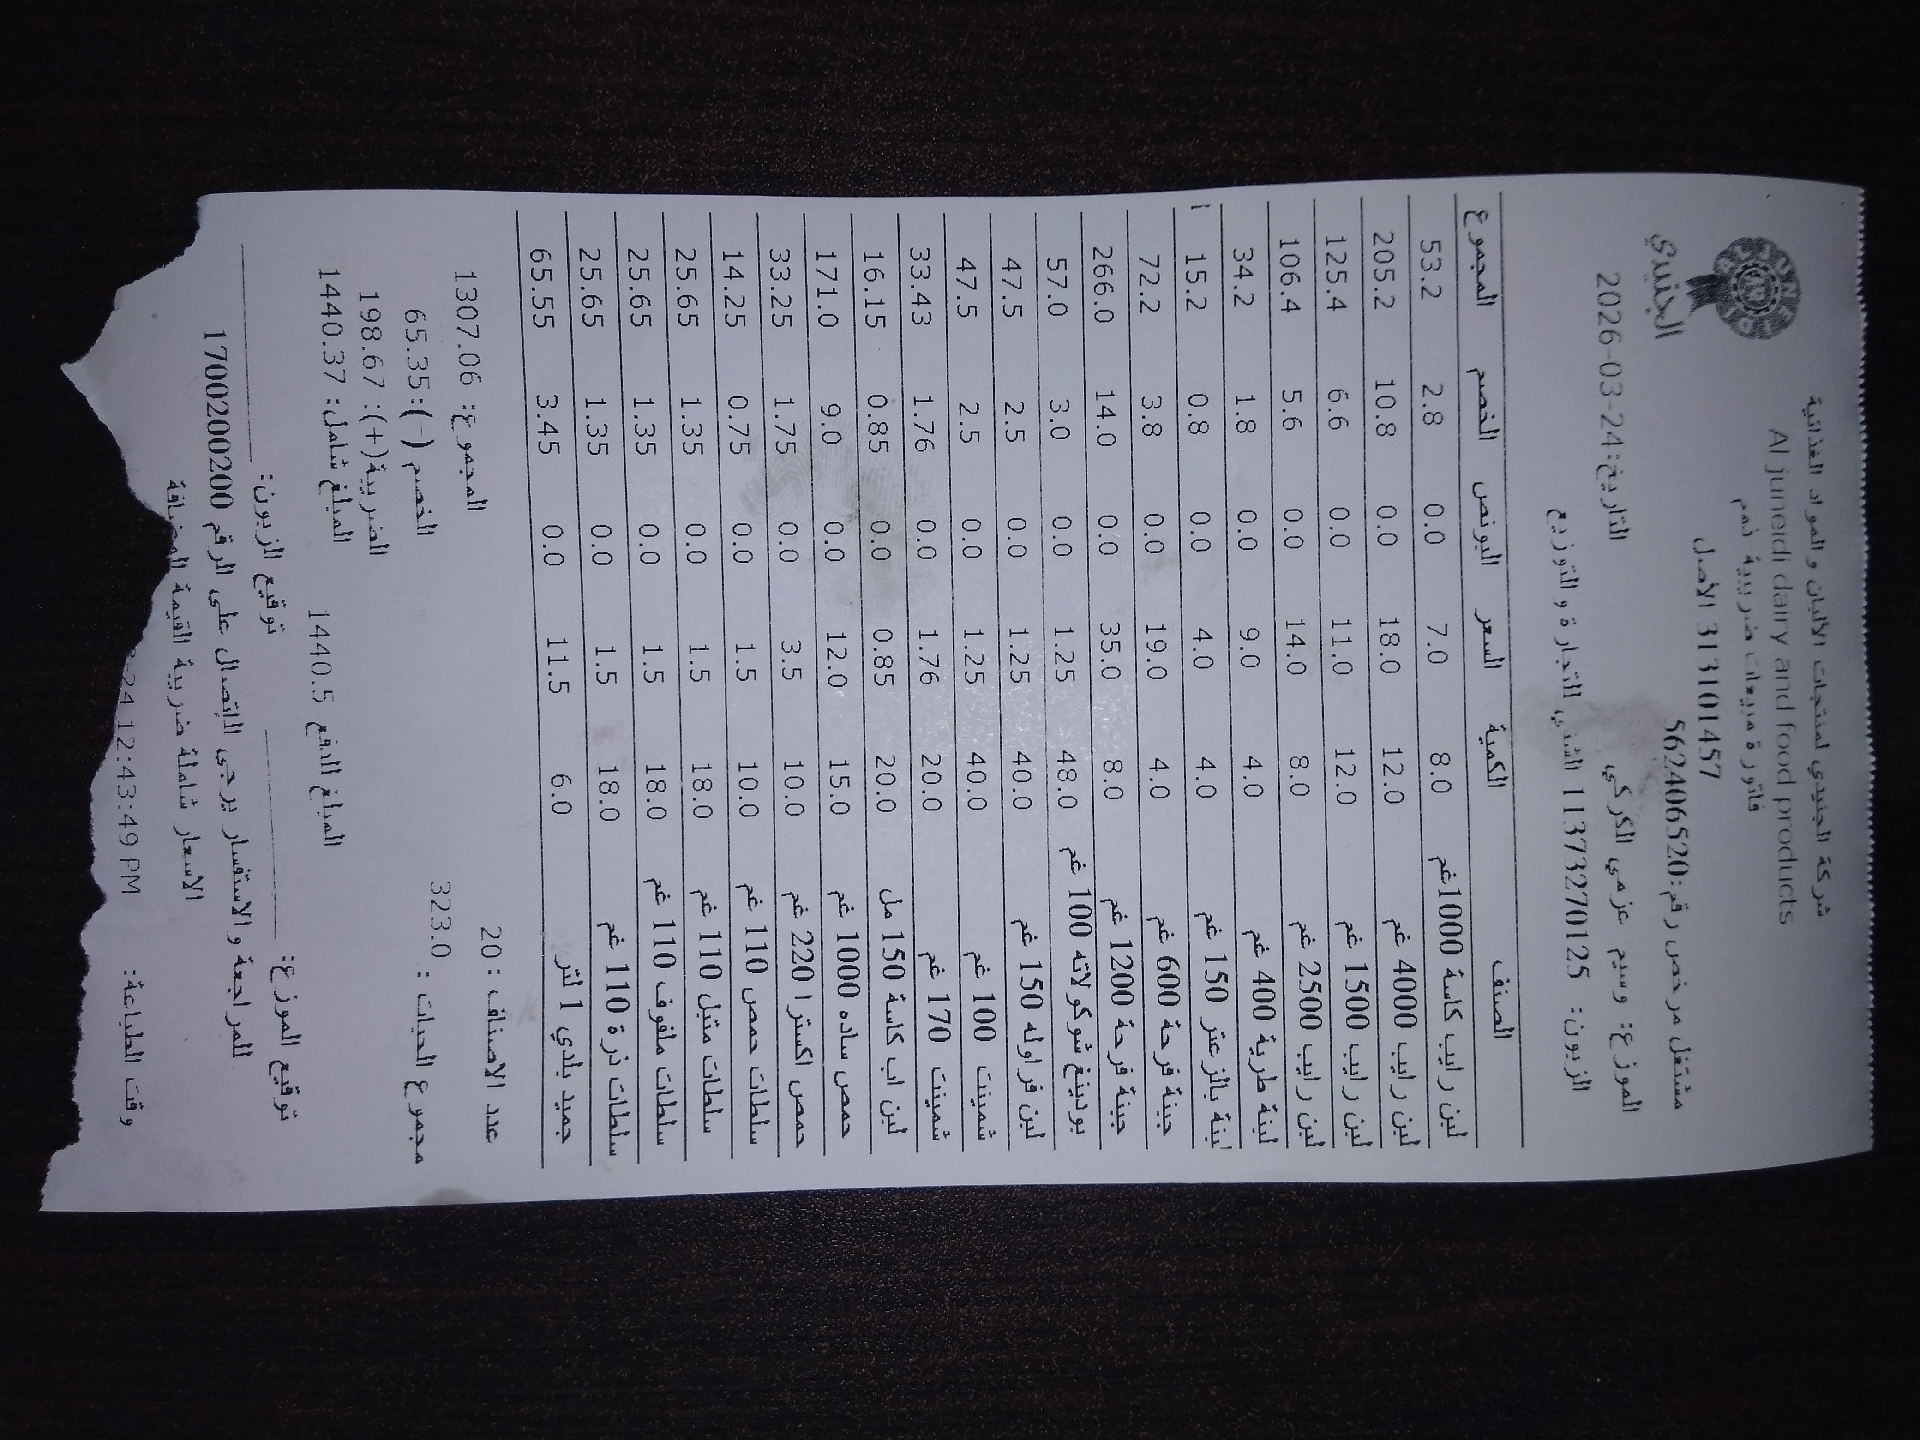 شركة الجنيدي لمنتجات الألبان و المواد الغذائية
Al juneidi dairy and food products
فاتورة مبيعات ضريبية ذمم
313101457 الأصل
الجنيدي
مشتغل مرخص رقم:562406520
التاريخ:24-03-2026
الموزع: وسيم عزمي الكركي
الزبون: 11373270125 للتجارة و التوزيع
الصنف الكمية السعر البونص الخصم المجموع
لبن رايب كاسة 1000غم 8.0 7.0 0.0 2.8 53.2
لبن رايب 4000 غم 12.0 18.0 0.0 10.8 205.2
لبن رايب 1500 غم 12.0 11.0 0.0 6.6 125.4
لبن رايب 2500 غم 8.0 14.0 0.0 5.6 106.4
لبنة طرية 400 غم 4.0 9.0 0.0 1.8 34.2
لبنة بالزعتر 150 غم 4.0 4.0 0.0 0.8 15.2
جبينة فرحة 600 غم 4.0 19.0 0.0 3.8 72.2
جبينة فرحة 1200 غم 8.0 35.0 0.0 14.0 266.0
بودينغ شوكولاته 100 غم 48.0 1.25 0.0 3.0 57.0
لبن فراوله 150 غم 40.0 1.25 0.0 2.5 47.5
شمينت 100 غم 40.0 1.25 0.0 2.5 47.5
شمينت 170 غم 20.0 1.76 0.0 1.76 33.43
لبن اب كاسة 150 مل 20.0 0.85 0.0 0.85 16.15
حمص ساده 1000 غم 15.0 12.0 0.0 9.0 171.0
حمص اكسترا 220 غم 10.0 3.5 0.0 1.75 33.25
سلطات حمص 110 غم 10.0 1.5 0.0 0.75 14.25
سلطات متبل 110 غم 18.0 1.5 0.0 1.35 25.65
سلطات ملفوف 110 غم 18.0 1.5 0.0 1.35 25.65
سلطات ذرة 110 غم 18.0 1.5 0.0 1.35 25.65
جميد بلدي 1 لتر 6.0 11.5 0.0 3.45 65.55
عدد الاصناف : 20 المجموع: 1307.06
مجموع الحبات : 323.0 الخصم (-):65.35
الضريبة(+): 198.67
المبلغ للدفع 1440.5 المبلغ شامل: 1440.37
توقيع الموزع: توقيع الزبون:
للمراجعة و الاستفسار يرجى الاتصال على الرقم 1700200200
الاسعار شاملة ضريبة القيمة المضافة
وقت الطباعة: 24 12:43:49 PM